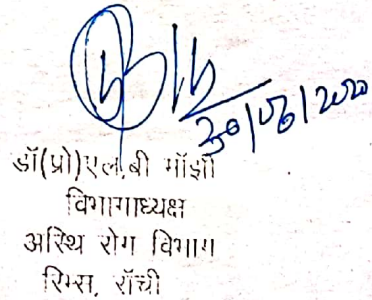 30/06/2020
डॉ(प्रो)एल.बी मॉझी
विभागाध्यक्ष
अस्थि रोग विभाग
रिम्स, रॉची